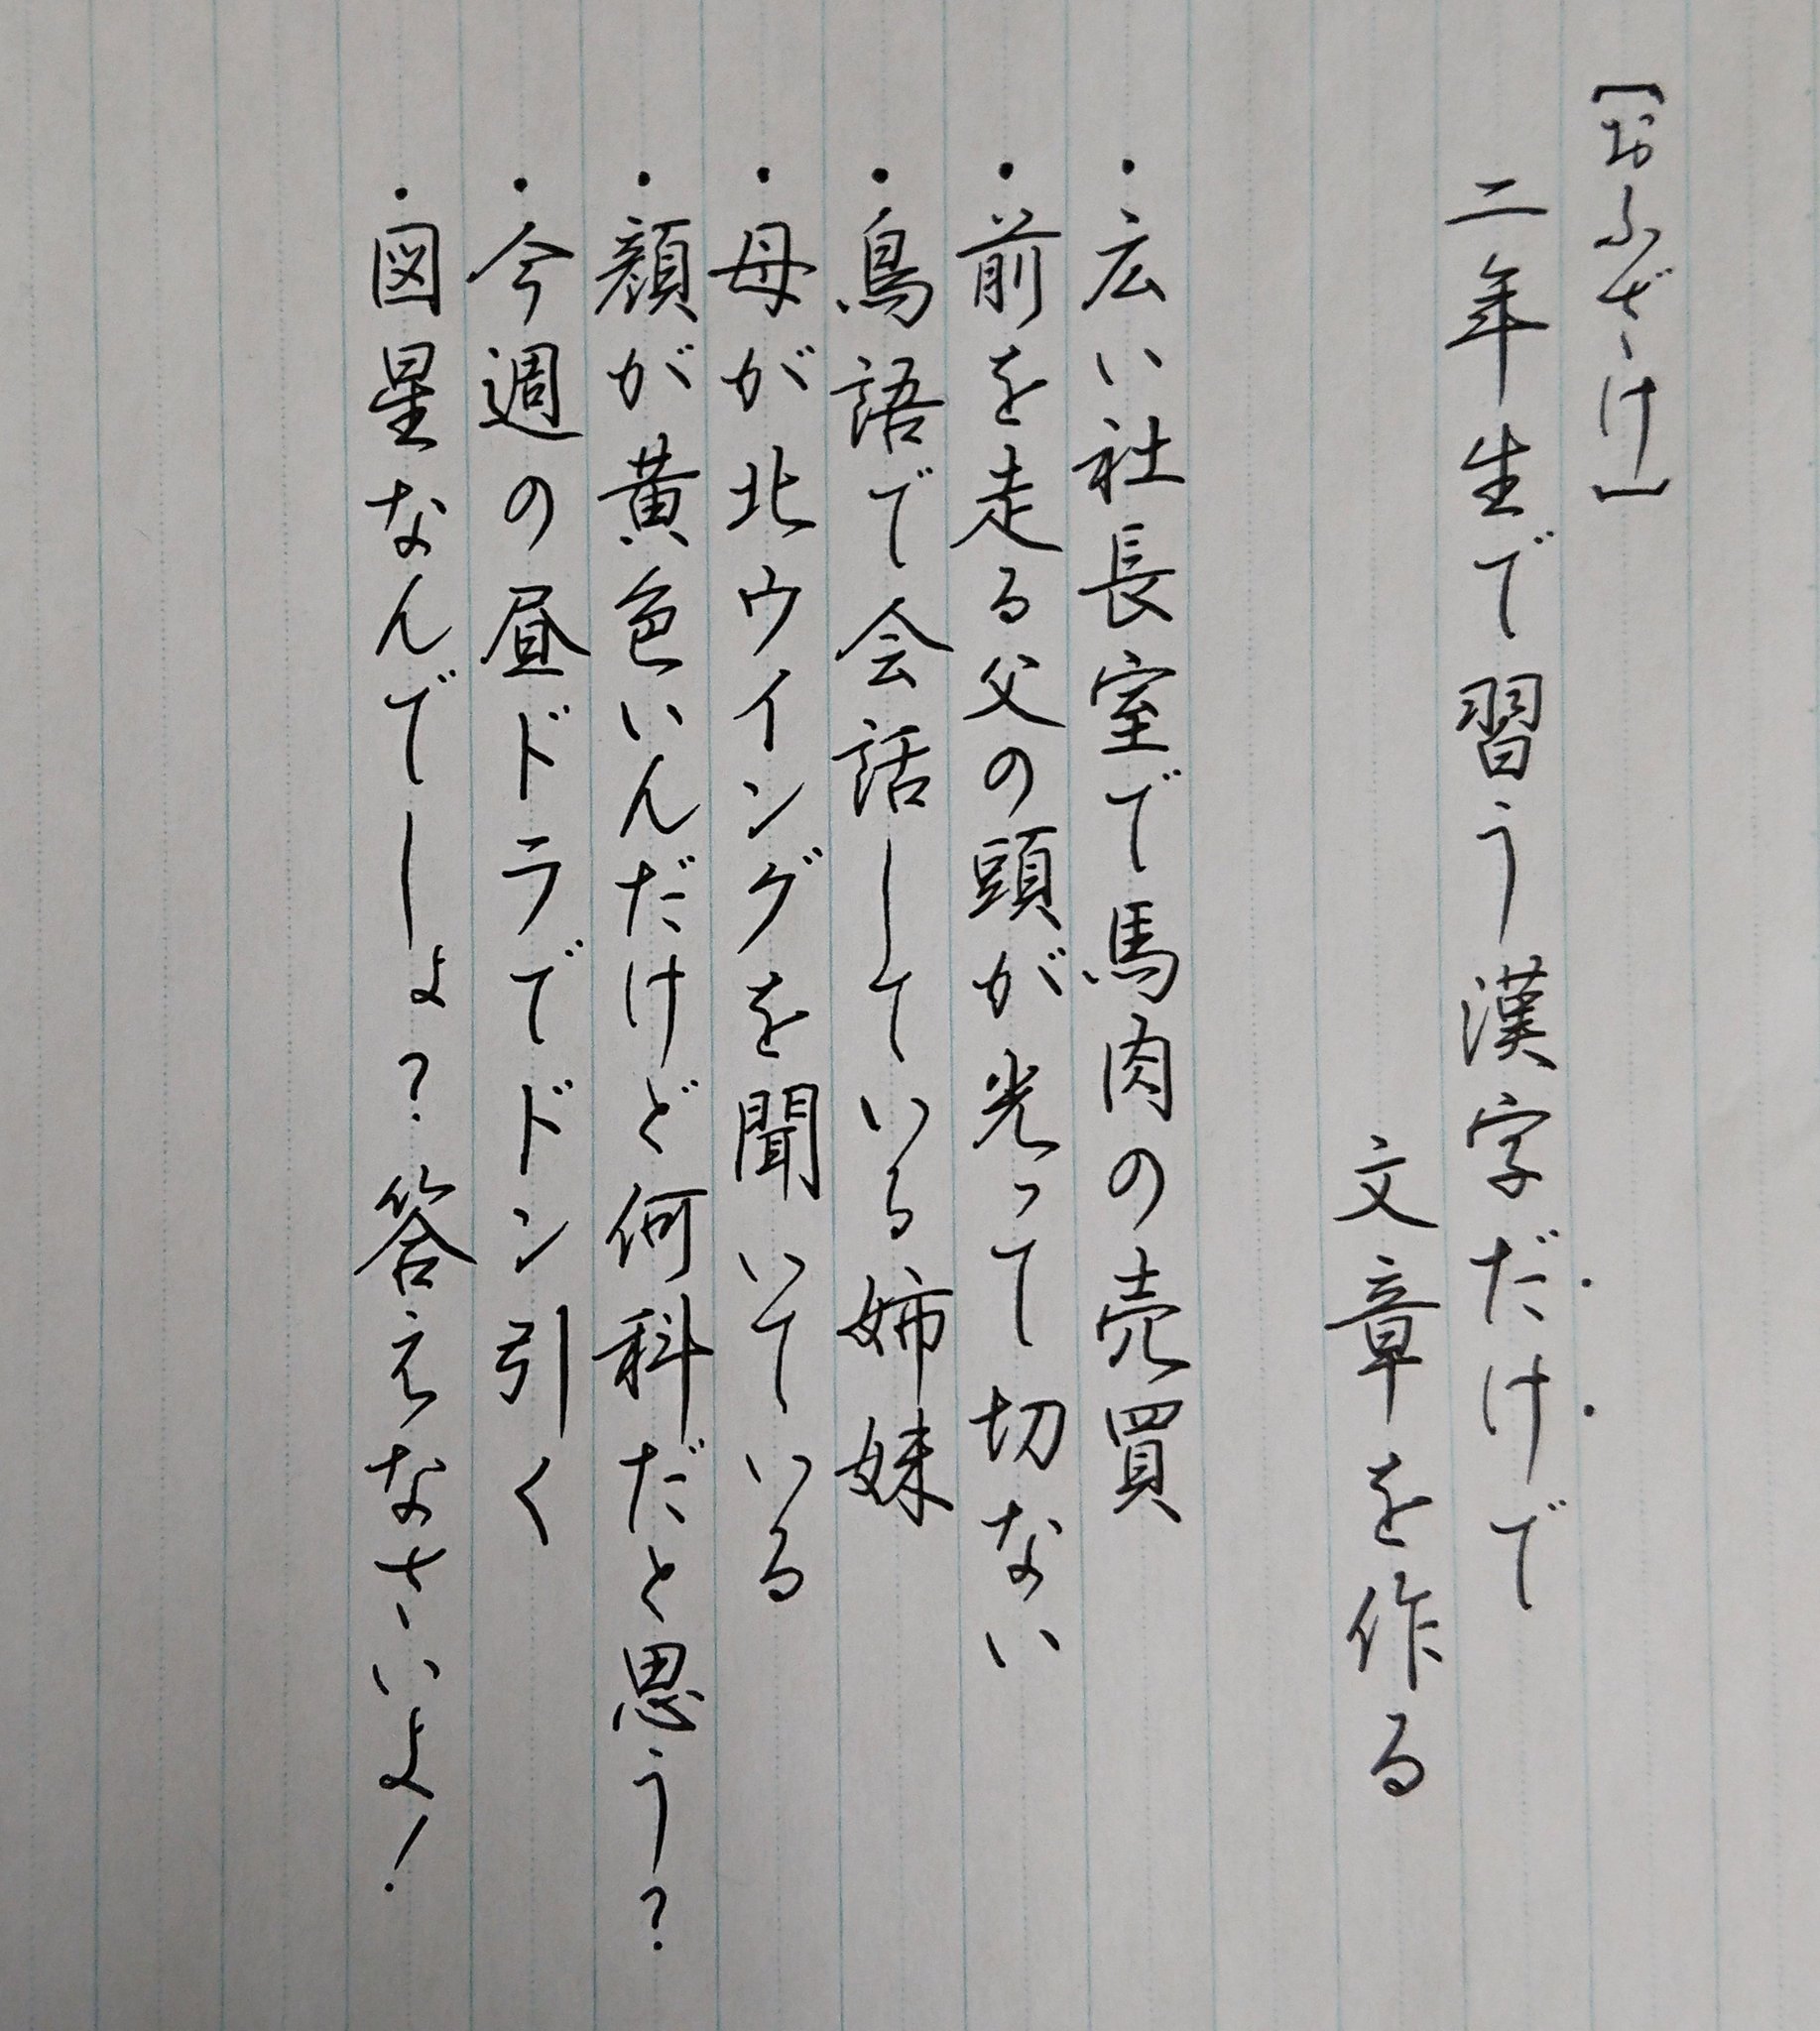 [おふざけ]
二年生で習う漢字だけで
文章を作る
・広い社長室で馬肉の売買
・前を走る父の頭が光って切ない
・鳥語で会話している姉妹
・母が北ウイングを聞いている
・顔が黄色いんだけど何科だと思う?
・今週の昼ドラでドン引く
・図星なんでしょ?答えなさいよ!